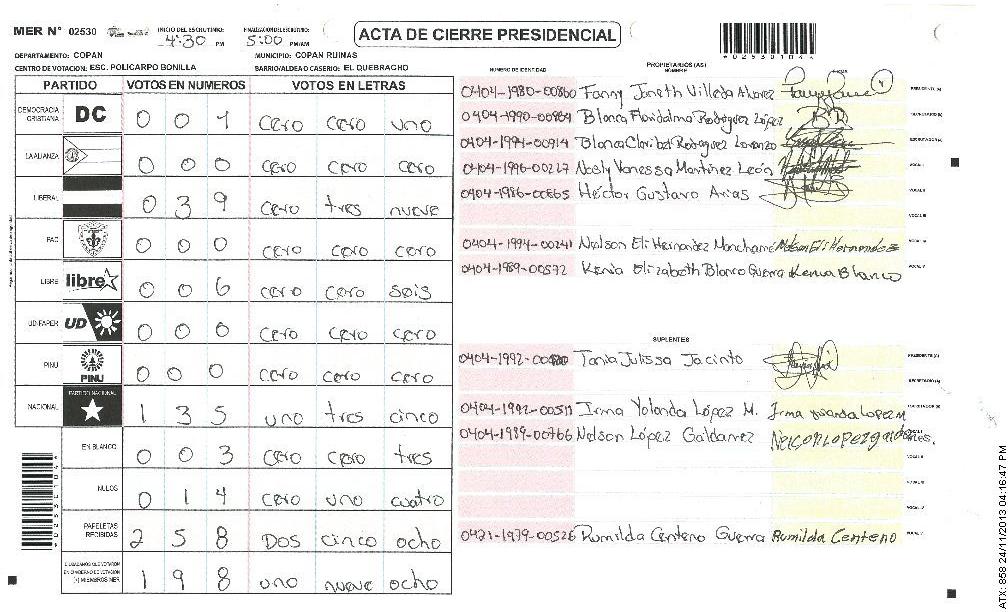 MER N° 02530 INICIO DEL ESCRUTINIO: 4:30 PM FINALIZACION DEL ESCRUTINIO: 5:00 PM/AM
ACTA DE CIERRE PRESIDENCIAL
DEPARTAMENTO: COPAN MUNICIPIO: COPAN RUINAS
CENTRO DE VOTACION: ESC. POLICARPO BONILLA BARRIO/ALDEA O CASERIO: EL QUEBRACHO
PARTIDO VOTOS EN NUMEROS VOTOS EN LETRAS
DEMOCRACIA CRISTIANA DC 0 0 1 cero cero uno
LA ALIANZA 0 0 0 cero cero cero
LIBERAL 0 3 9 cero tres nueve
PAC 0 0 0 cero cero cero
LIBRE libre 0 0 6 cero cero seis
UD-FAPER UD 0 0 0 cero cero cero
PINU PINU 0 0 0 cero cero cero
NACIONAL PARTIDO NACIONAL 1 3 5 uno tres cinco
EN BLANCO 0 0 3 cero cero tres
NULOS 0 1 4 cero uno cuatro
PAPELETAS RECIBIDAS 2 5 8 Dos cinco ocho
CIUDADANOS QUE VOTARON EN CUADERNO DE VOTACION (+) MIEMBROS MER 1 9 8 uno nueve ocho
NUMERO DE IDENTIDAD PROPIETARIOS (AS) NOMBRE FIRMA
0404-1980-00860 Fanny Janeth Villeda Alvarez PRESIDENTE (A)
0404-1990-00964 Blanca Floridalma Rodriguez López SECRETARIO (A)
0404-1994-00914 Blanca Claribel Rodriguez Lorenzo ESCRUTADOR (A)
0404-1996-00227 Nesly Vanessa Martinez León VOCAL I
0404-1986-00865 Héctor Gustavo Arias VOCAL II
VOCAL III
0404-1994-00241 Nelson Eli Hernandez Manchamé Nelson Eli Hernandez VOCAL IV
0404-1989-00572 Kenia Elizabeth Blanco Guerra Kenia Blanco VOCAL V
SUPLENTES
0404-1992- Tania Julissa Jacinto PRESIDENTE (A)
SECRETARIO (A)
0404-1992-00511 Irma Yolanda López M. Irma Yolanda Lopez M ESCRUTADOR (A)
0404-1989-00766 Nelson López Galdamez VOCAL I
VOCAL II
VOCAL III
VOCAL IV
0421-1979-00526 Rumilda Centeno Guerra Rumilda Centeno VOCAL V
ATX: 858 24/11/2013 04:16:47 PM